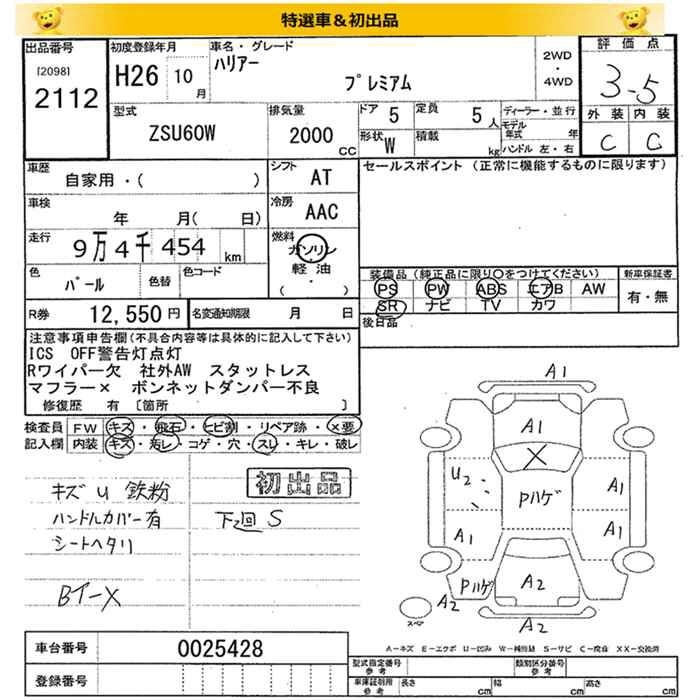 特選車＆初出品
出品番号
[2098]
2112
初度登録年月
H26 10 月
車名・グレード
ハリアー
プレミアム
2WD
・
4WD
評価点
3.5
外装 内装
C C
型式
ZSU60W
排気量
2000 CC
ドア 5
定員 5 人
形状 W
積載 kg
ディーラー・並行
モデル年式 年
ハンドル 左・右
車歴
自家用・( )
シフト AT
セールスポイント (正常に機能するものに限ります)
車検
年 月( 日)
冷房 AAC
走行
9万4千454 km
燃料
ガソリン
軽油
( ・ )
色
パール
色替
色コード
装備品(純正品に限り○をつけてください)
新車保証書
PS PW ABS エアB AW
SR ナビ TV カワ
有・無
後日品
R券 12,550 円
名変通知期限 月 日
注意事項申告欄(不具合内容等は具体的に記入して下さい)
ICS OFF警告灯点灯
Rワイパー欠 社外AW スタットレス
マフラー× ボンネットダンパー不良
修復歴 有 [箇所 ]
検査員 FW キズ・飛石・ヒビ割・リペア跡・×要
記入欄 内装 キズ・汚レ・コゲ・穴・スレ・キレ・破レ
初出品
キズ U 鉄粉
ハンドルカバー有
シートヘタリ
下廻 S
A1
A1
X
U2
Pハゲ
A1
A1
A1
Pハゲ
A2
A2
A2
スペア
A－キズ E－エクボ U－凹み W－補修跡 S－サビ C－腐食 XX－交換済
車台番号 0025428
登録番号
型式指定番号
参考
類別区分番号
参考
車庫証明用
参考
長さ cm 幅 cm 高さ cm